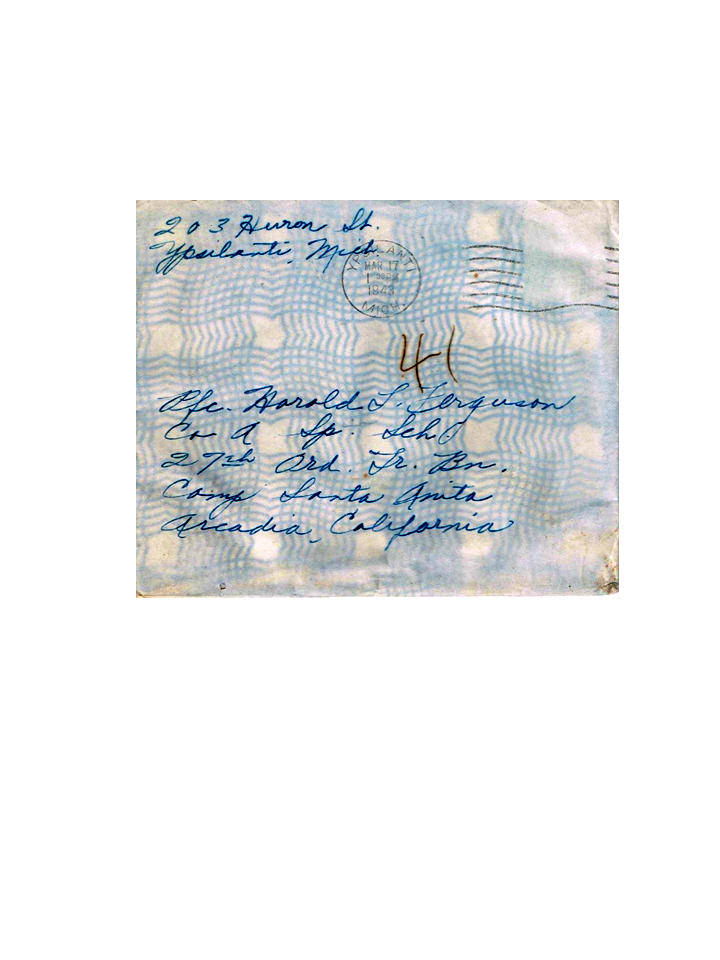 203 Huron St.
Ypsilanti, Mich.
YPSILANTI
MAR 17
1943
MICH.
41
Pfc. Harold L. Ferguson
Co A Sp. Sch
27th Ord. Tr. Bn.
Camp Santa Anita
Arcadia, California